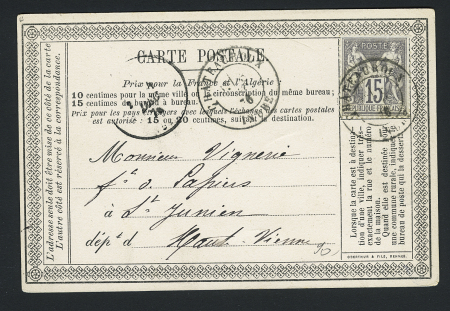 CARTE POSTALE
Prix pour la France et l'Algérie:
10 centimes pour la même ville ou circonscription du même bureau;
15 centimes de bureau à bureau.
Prix pour les pays avec lesquels l'échange des cartes postales
est autorisé: 15 centimes, suivant la destination.
Monsieur Vignerie
à St Junien
dépt d Haute-Vienne
L'adresse seule doit être mise de ce côté de la carte
L'autre côté est réservé à la correspondance.
POSTE
15
RÉPUBLIQUE FRANÇAISE
Lorsque la carte est à destina-
tion d'une ville, indiquer très-
exactement la rue et le numéro
de la maison.
Quand elle est destinée à
une commune rurale, indiquer le
bureau de poste qui la dessert.
OBERTHUR & FILS, RENNES.